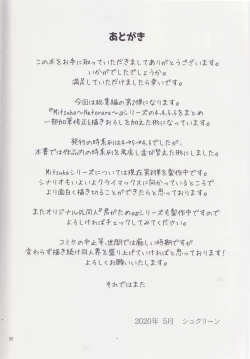 あとがき
この本をお手に取っていただきましてありがとうございます。
いかがでしたでしょうか。
満足していただけましたら幸いです。
今回は総集編の第2弾になります。
『Mitsuka〜Netorare〜』シリーズの4.4.5.5をまとめ
一部加筆修正&描きおろしを加えた形になっています。
発行の時系列は4→5→4.5でしたが、
本書では作品内の時系列を考慮し並び替えた形にしました。
Mitsukaシリーズについては現在第9弾を製作中です。
シナリオもいよいよクライマックスに向かっているところで
より面白く描き切ることができたらと思っております!
またオリジナルBL同人『君がため』シリーズも製作中ですので
よろしければチェックしてみてください。
コミケの中止等、世間では厳しい時期ですが
変わらず描き続け同人界を盛り上げていければと思っております!
よろしくお願いいたします。
それではまた
2020年 5月 シュクリーン